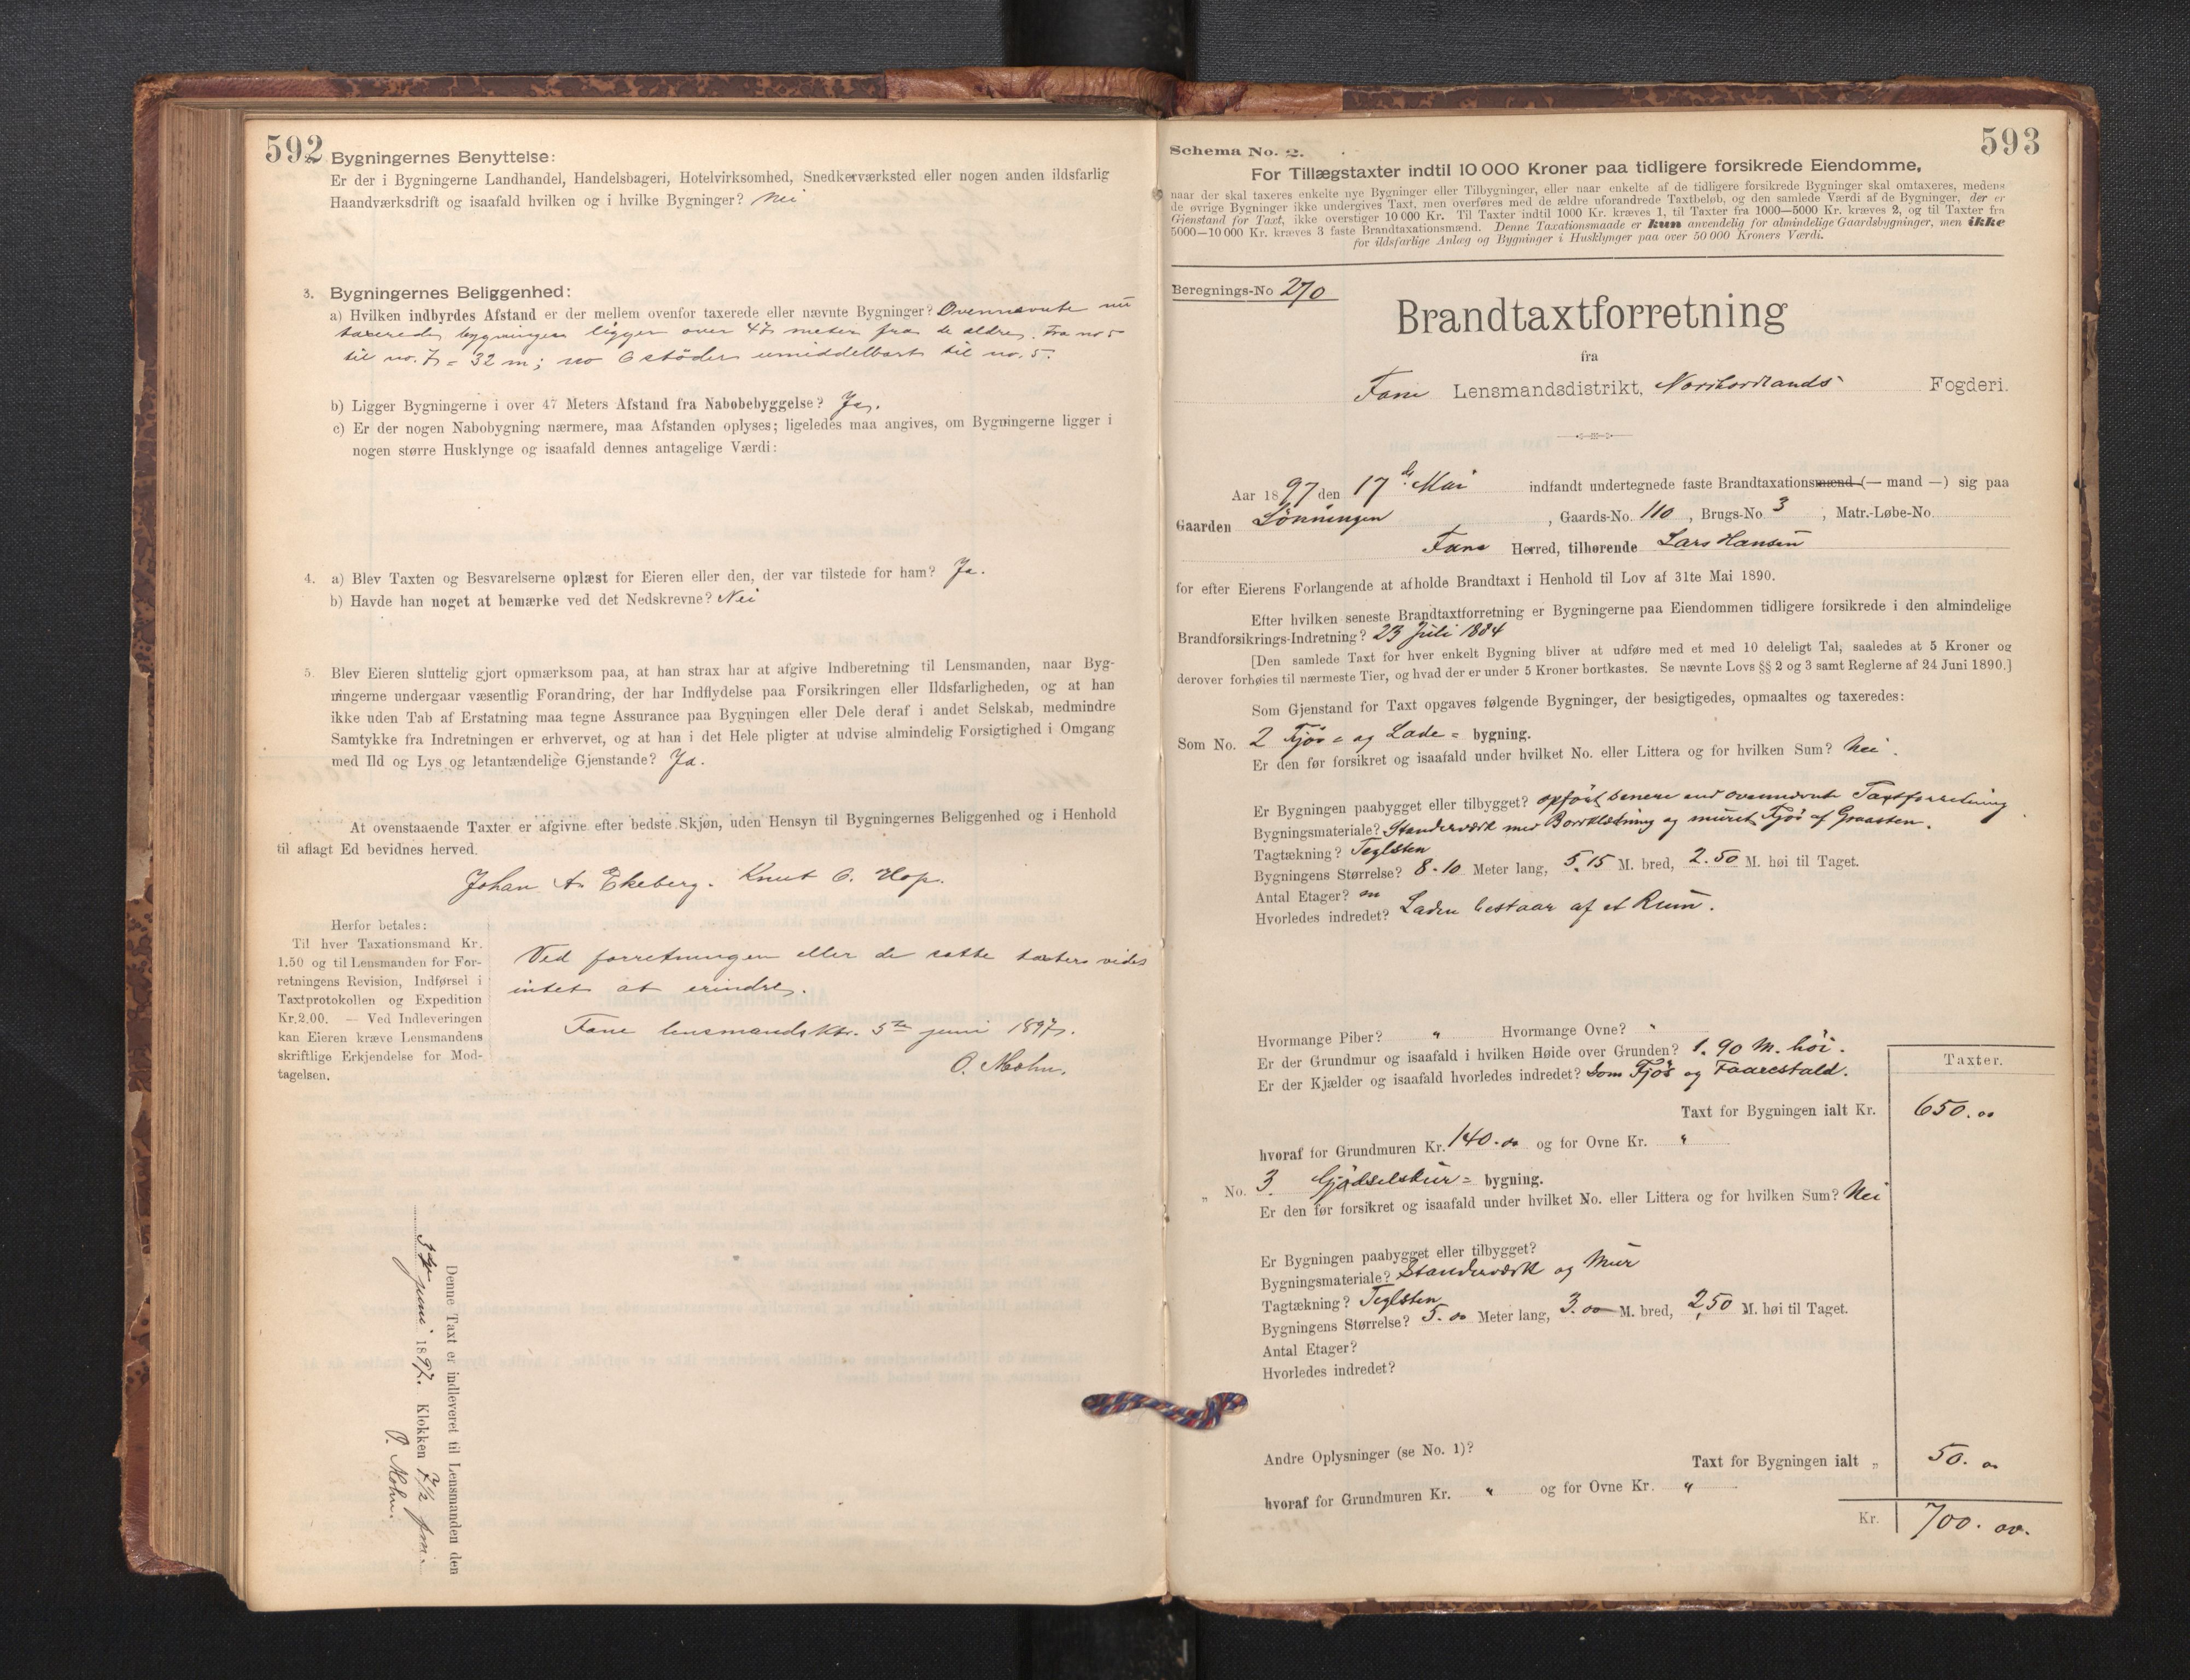 592
Bygningernes Benyttelse:
Er der i Bygningerne Landhandel, Handelsbageri, Hotelvirksomhed, Snedkerværksted eller nogen anden ildsfarlig
Haandværksdrift og isaafald hvilken og i hvilke Bygninger? Nei
3. Bygningernes Beliggenhed:
a) Hvilken indbyrdes Afstand er der mellem ovenfor taxerede eller nævnte Bygninger? Ovennævnte nu
taxerede bygninger ligger over 47 meter fra de ældre. Fra no 5
til no. 7 = 32 m; no 6 støder umiddelbart til no. 5.
b) Ligger Bygningerne i over 47 Meters Afstand fra Nabobebyggelse? Ja.
c) Er der nogen Nabobygning nærmere, maa Afstanden oplyses; ligeledes maa angives, om Bygningerne ligger i
nogen større Husklynge og isaafald dennes antagelige Værdi:
4. a) Blev Taxten og Besvarelserne oplæst for Eieren eller den, der var tilstede for ham? Ja.
b) Havde han noget at bemærke ved det Nedskrevne? Nei
5. Blev Eieren sluttelig gjort opmærksom paa, at han strax har at afgive Indberetning til Lensmanden, naar Byg-
ningerne undergaar væsentlig Forandring, der har Indflydelse paa Forsikringen eller Ildsfarligheden, og at han
ikke uden Tab af Erstatning maa tegne Assurance paa Bygningen eller Dele deraf i andet Selskab, medmindre
Samtykke fra Indretningen er erhvervet, og at han i det Hele pligter at udvise almindelig Forsigtighed i Omgang
med Ild og Lys og letantændelige Gjenstande? Ja.
At ovenstaaende Taxter er afgivne efter bedste Skjøn, uden Hensyn til Bygningernes Beliggenhed og i Henhold
til aflagt Ed bevidnes herved.
Johan A. Ekeberg. Knut O. Hop.
Herfor betales:
Til hver Taxationsmand Kr.
1.50 og til Lensmanden for For-
retningens Revision, Indførsel i
Taxtprotokollen og Expedition
Kr.2.00. — Ved Indleveringen
kan Eieren kræve Lensmandens
skriftlige Erkjendelse for Mod-
tagelsen.
Ved forretningen eller de satte taxter vides
intet at erindre.
Fane lensmandsktr. 5te juni 1897.
O. Mohn.
Denne Taxt er indleveret til Lensmanden den
juni 1897. Klokken 7 1/2 fm.
O. Mohn.
593
Schema No. 2.
For Tillægstaxter indtil 10 000 Kroner paa tidligere forsikrede Eiendomme,
naar der skal taxeres enkelte nye Bygninger eller Tilbygninger, eller naar enkelte af de tidligere forsikrede Bygninger skal omtaxeres, medens
de øvrige Bygninger ikke undergives Taxt, men overføres med de ældre uforandrede Taxtbeløb, og den samlede Værdi af de Bygninger, der er
Gjenstand for Taxt, ikke overstiger 10 000 Kr. Til Taxter indtil 1000 Kr. kræves 1, til Taxter fra 1000—5000 Kr. kræves 2, og til Taxter fra
5000—10 000 Kr. kræves 3 faste Brandtaxationsmænd. Denne Taxationsmaade er kun anvendelig for almindelige Gaardsbygninger, men ikke
for ildsfarlige Anlæg og Bygninger i Husklynger paa over 50 000 Kroners Værdi.
Beregnings-No 270
Brandtaxtforretning
fra
Fane Lensmandsdistrikt, Nordhordlands Fogderi.
Aar 1897 den 17de Mai indfandt undertegnede faste Brandtaxationsmænd (— mand —) sig paa
Gaarden Lønningen, Gaards-No. 110, Brugs-No. 3, Matr.-Løbe-No.
Fane Herred, tilhørende Lars Hansen
for efter Eierens Forlangende at afholde Brandtaxt i Henhold til Lov af 31te Mai 1890.
Efter hvilken seneste Brandtaxtforretning er Bygningerne paa Eiendommen tidligere forsikrede i den almindelige
Brandforsikrings-Indretning? 23 Juli 1884
[Den samlede Taxt for hver enkelt Bygning bliver at udføre med et med 10 deleligt Tal, saaledes at 5 Kroner og
derover forhøies til nærmeste Tier, og hvad der er under 5 Kroner bortkastes. Se nævnte Lovs §§ 2 og 3 samt Reglerne af 24 Juni 1890.]
Som Gjenstand for Taxt opgaves følgende Bygninger, der besigtigedes, opmaaltes og taxeredes:
Som No. 2 Fjøs= og Lade= bygning.
Er den før forsikret og isaafald under hvilket No. eller Littera og for hvilken Sum? Nei.
Er Bygningen paabygget eller tilbygget? opført senere end ovennævnte Taxtforretning
Bygningsmateriale? Standerværk med Bordklædning og muret Fjøs af Graasten.
Tagtækning? Teglsten
Bygningens Størrelse? 8.10 Meter lang, 5.15 M. bred, 2.50 M. høi til Taget.
Antal Etager? en
Hvorledes indredet? Laden bestaar af et Rum.
Hvormange Piber? " Hvormange Ovne? "
Er der Grundmur og isaafald i hvilken Høide over Grunden? 1.90 M. høi.
Er der Kjælder og isaafald hvorledes indredet? Som Fjøs og Faarestald.
Taxter.
Taxt for Bygningen ialt Kr. 650.00
hvoraf for Grundmuren Kr. 140.00 og for Ovne Kr. "
„ No. 3. Gjødselskur= bygning.
Er den før forsikret og isaafald under hvilket No. eller Littera og for hvilken Sum? Nei
Er Bygningen paabygget eller tilbygget?
Bygningsmateriale? Standerværk og Mur
Tagtækning? Teglsten
Bygningens Størrelse? 5.00 Meter lang, 3.00 M. bred, 2,50 M. høi til Taget.
Antal Etager?
Hvorledes indredet?
Andre Oplysninger (se No. 1)?
Taxt for Bygningen ialt „ 50.00
hvoraf for Grundmuren Kr. " og for Ovne Kr. "
Kr. 700.00.